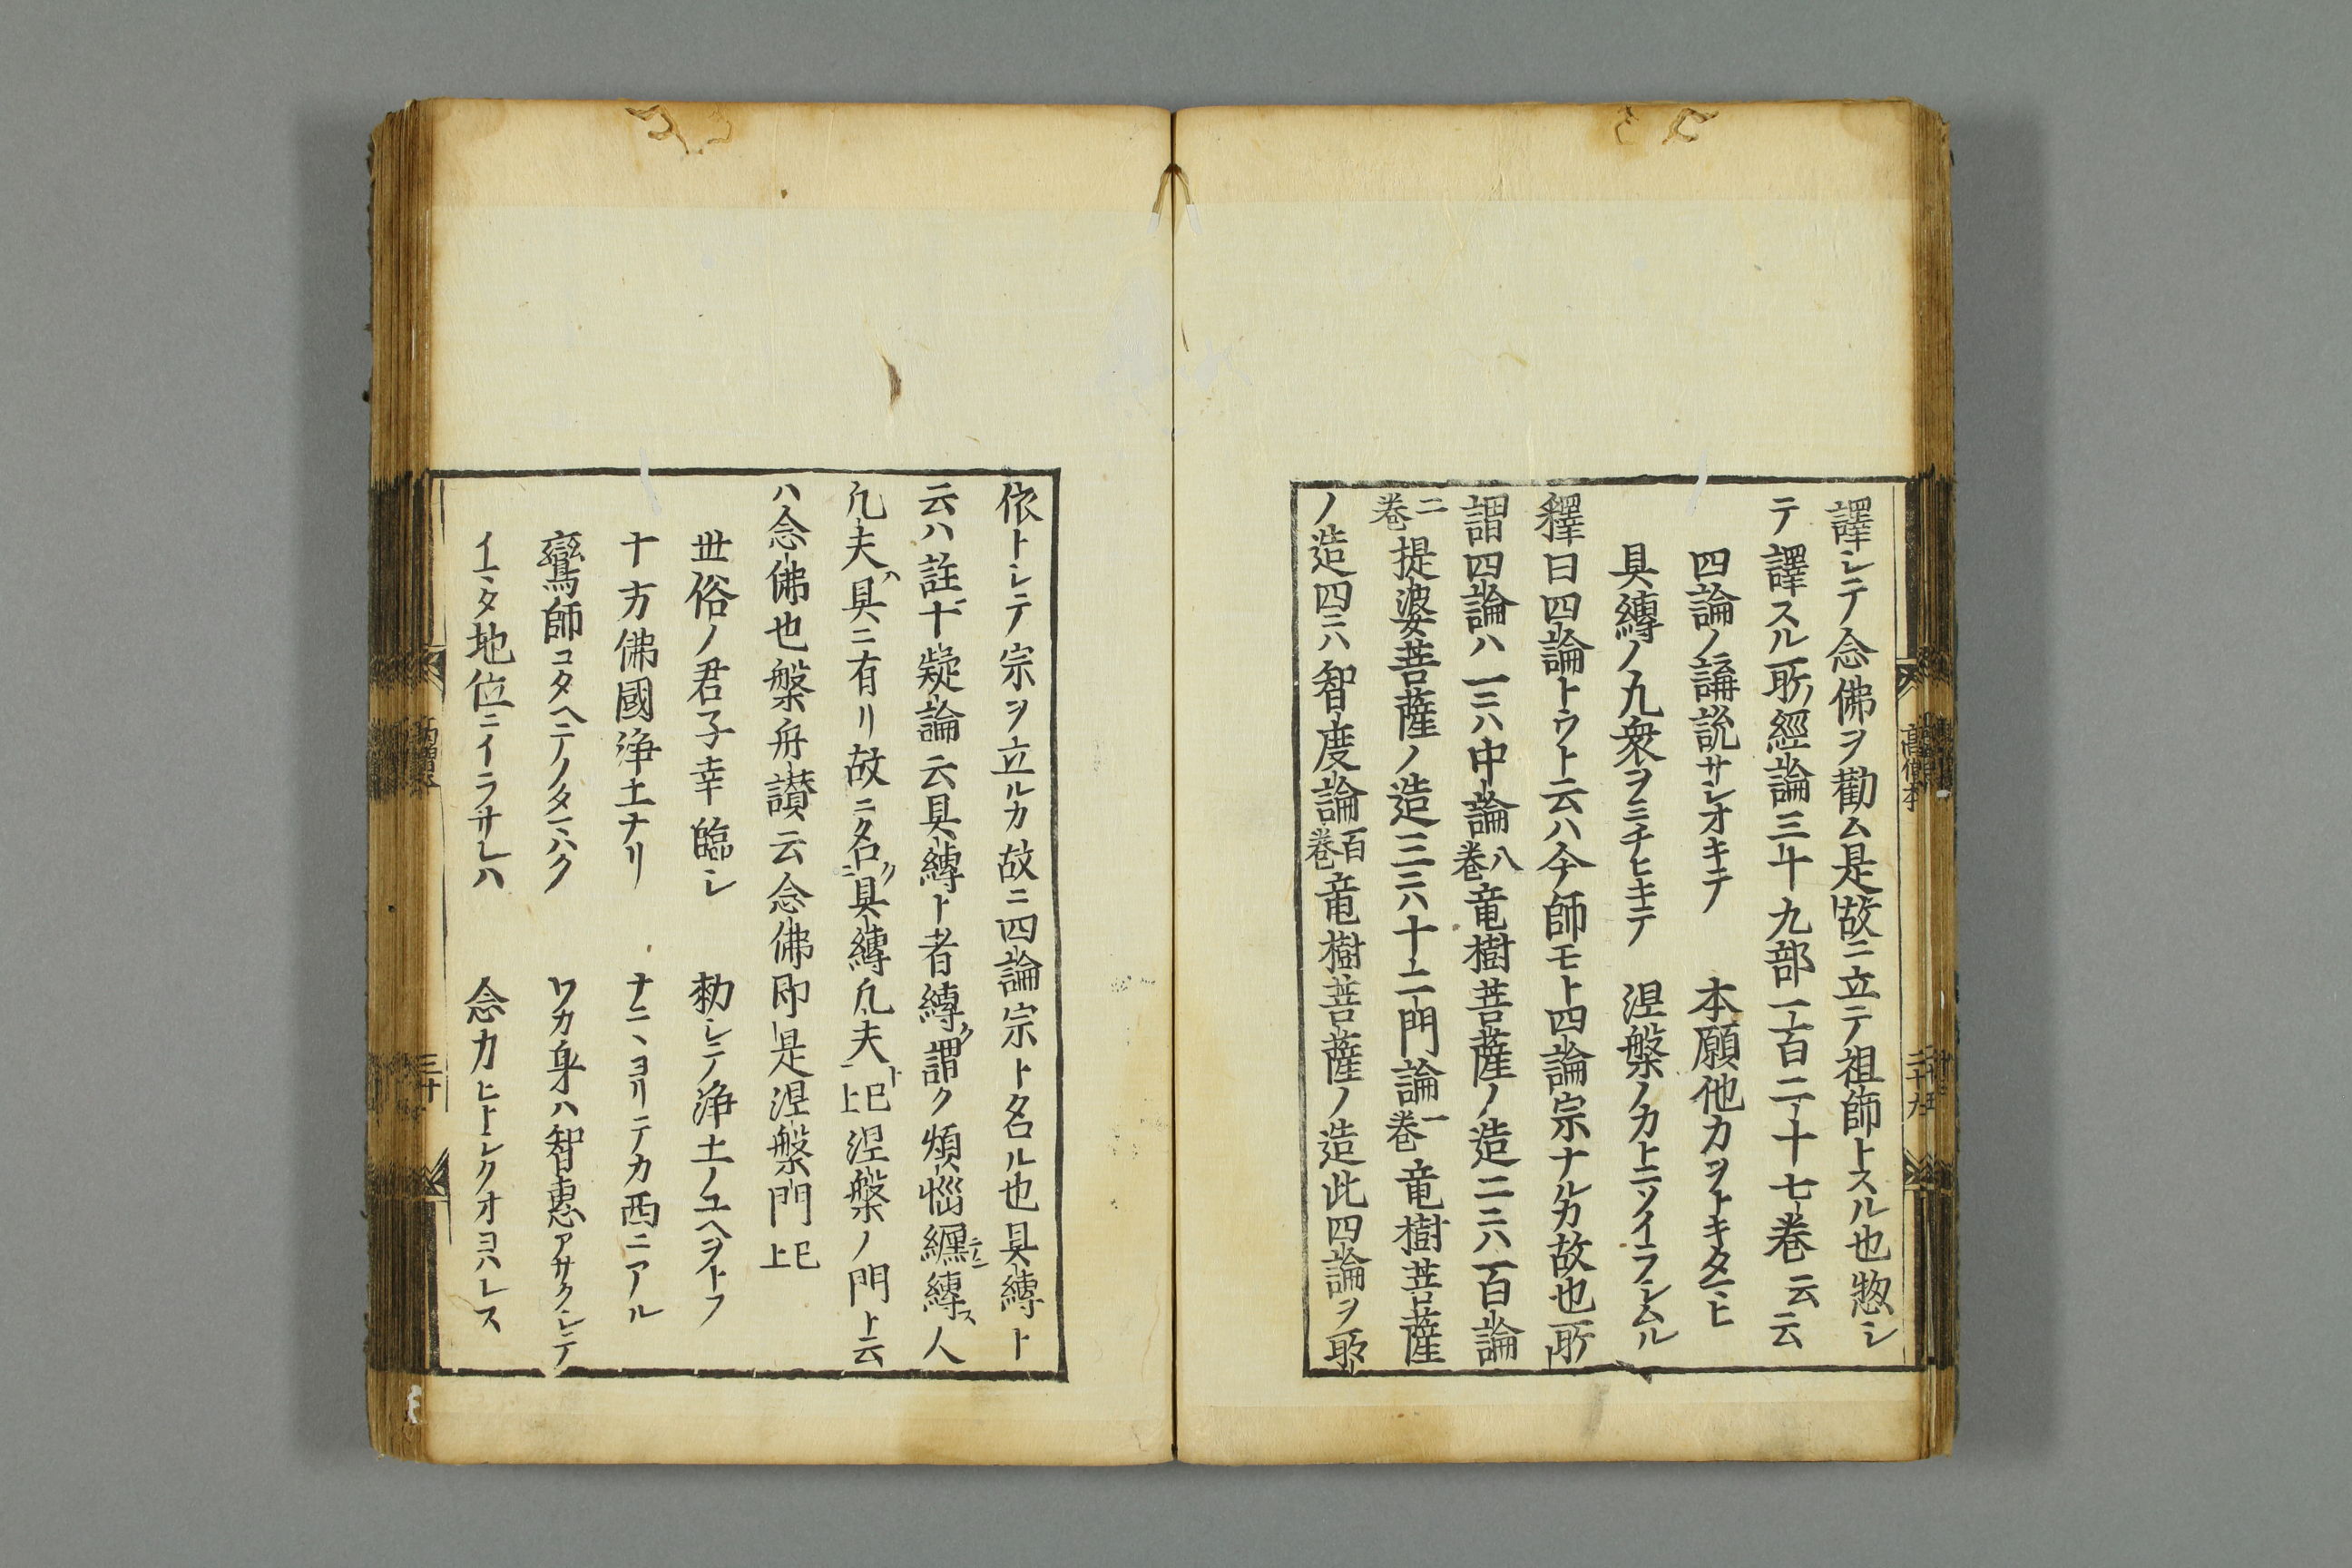 譯シテ念佛ヲ勸ム是故ニ立テ祖師トスル也惣シ
テ譯スル所ノ經論三十九部一百二十七卷云云
四論ノ講説サシオキテ　本願他力ヲトキタマヒ
具縛ノ凢衆ヲミチヒキテ　涅槃ノカトニソイラシムル
釋曰四論トウト云ハ今師モト四論宗ナルカ故也所
謂四論ハ一ニハ中論八卷竜樹菩薩ノ造二ニハ百論
二卷提婆菩薩ノ造三ニハ十二門論一卷竜樹菩薩
ノ造四ニハ智度論百卷竜樹菩薩ノ造此四論ヲ所
髙僧本
二十九
依トシテ宗ヲ立ルカ故ニ四論宗ト名ル也具縛ト
云ハ註十疑論云具縛ト者縛謂ク煩惱纒縛ス人
凢夫ハ具ニ有リ故ニ名ク具縛凢夫ト已上涅槃ノ門ト云
ハ念佛也槃舟讃云念佛即是涅槃門已上
世俗ノ君子幸臨シ　勅シテ浄土ノユヘヲトフ
十方佛國浄土ナリ　ナニヽヨリテカ西ニアル
鸞師コタヘテノタマハク　ワカ身ハ智惠アサクシテ
イマタ地位ニイラサレハ　念力ヒトシクオヨハレス
三十